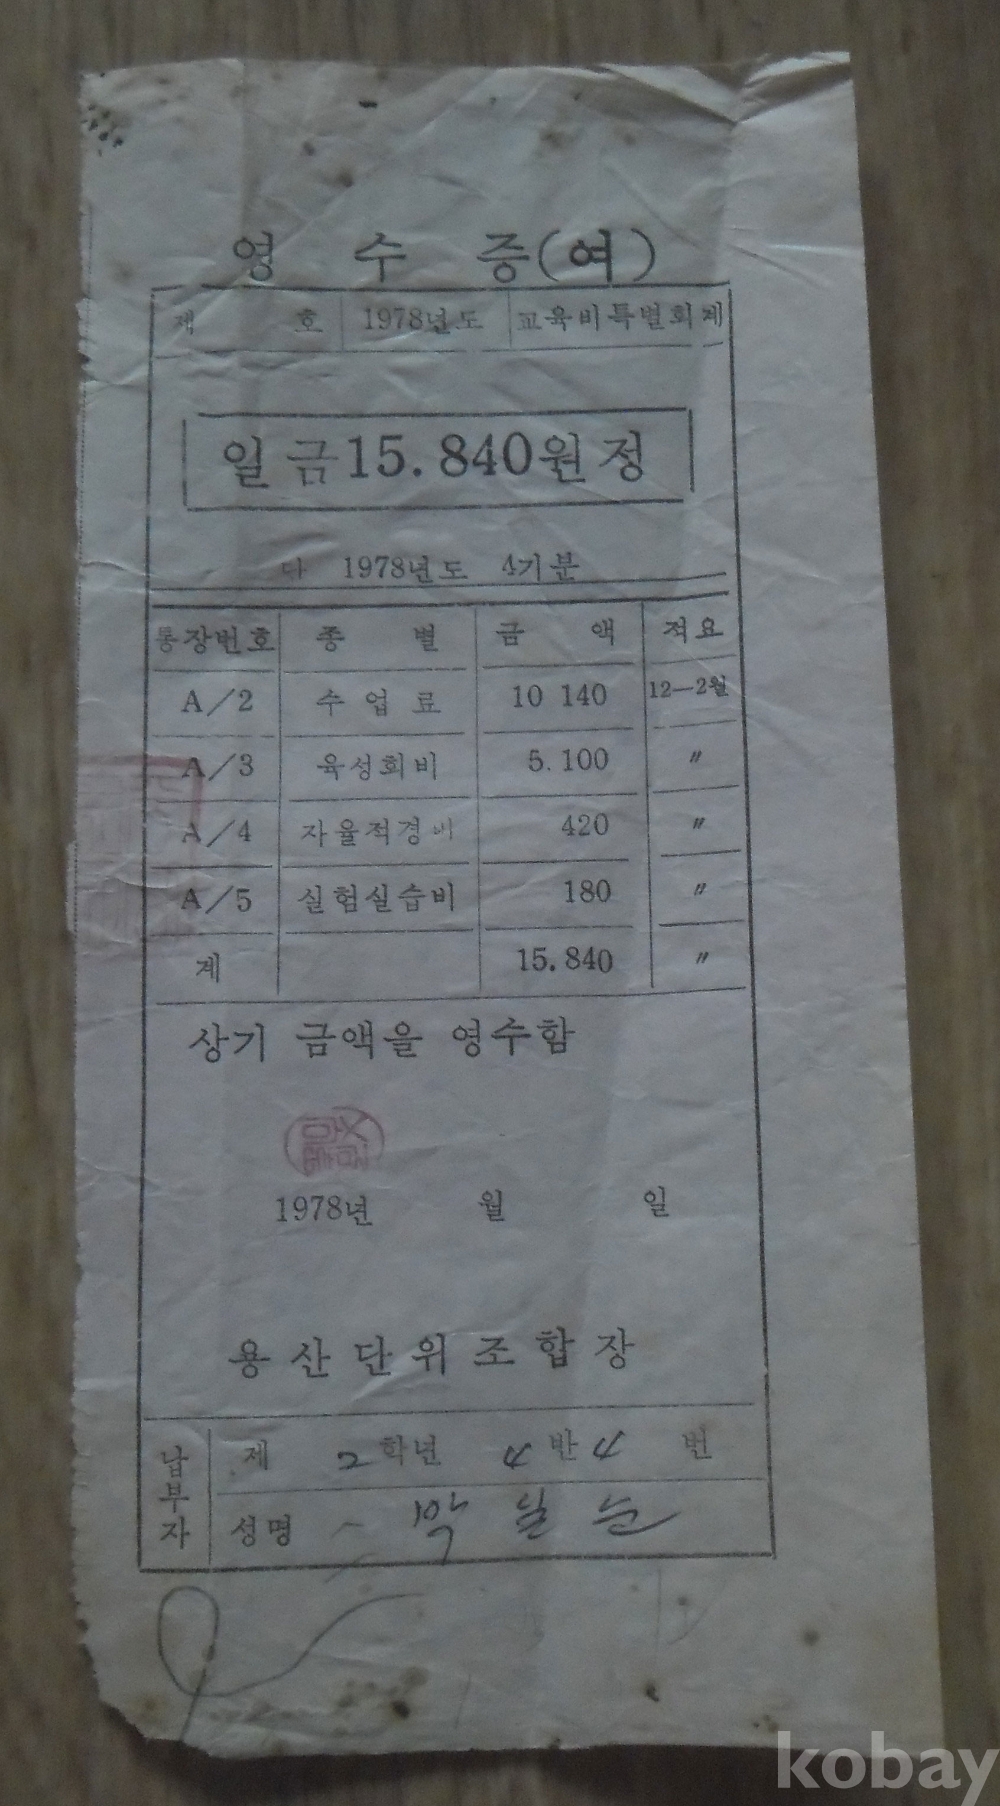 영 수 증(여)
제 호 1978년도 교육비특별회계
일금15.840원정
다 1978년도 4기분
통장번호 종 별 금 액 적요
A/2 수업료 10 140 12-2월
A/3 육성회비 5.100 〃
A/4 자율적경비 420 〃
A/5 실험실습비 180 〃
계 15.840 〃
상기 금액을 영수함
1978년 월 일
용산단위조합장
납부자
제 2학년 4반 4 번
성명 박 순
kobay